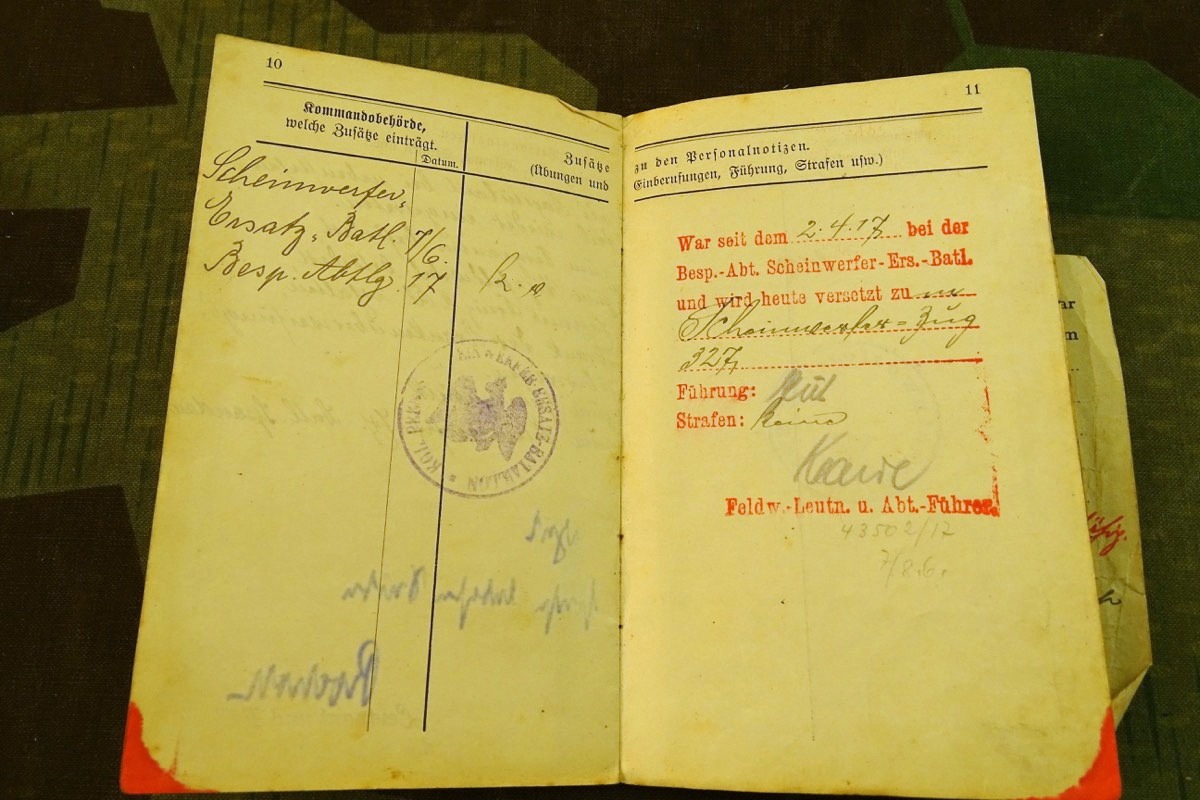 10
Kommandobehörde,
welche Zusätze einträgt.
Datum.
Zusätze
(Übungen und
Scheinwerfer-
Ersatz-Batl. 7/6.
Besp. Abtlg. 17
KGL. PREUSS. SCHEINWERFER-ERSATZ-BATAILLON
11
zu den Personalnotizen.
Einberufungen, Führung, Strafen usw.)
War seit dem 2.4.17 bei der
Besp.-Abt. Scheinwerfer-Ers.-Batl.
und wird heute versetzt zu
Scheinwerfer-Zug
327
Führung: Gut
Strafen: keine
Feldw.-Leutn. u. Abt.-Führer.
43502/17
7/8.6.